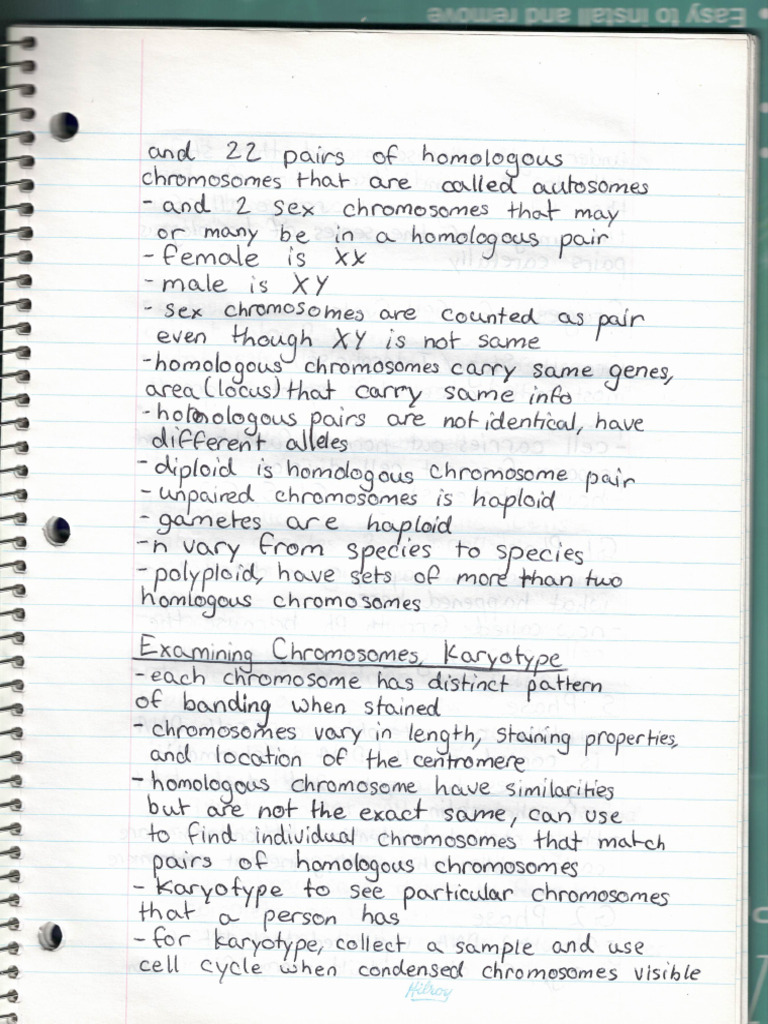 Easy to install and remove
and 22 pairs of homologous
chromosomes that are called autosomes
- and 2 sex chromosomes that may
or many be in a homologous pair
- female is XX
- male is XY
- sex chromosomes are counted as pair
even though XY is not same
- homologous chromosomes carry same genes,
area (locus) that carry same info
- homologous pairs are not identical, have
different alleles
- diploid is homologous chromosome pair
- unpaired chromosomes is haploid
- gametes are haploid
- n vary from species to species
- polyploid, have sets of more than two
homlogous chromosomes
Examining Chromosomes, Karyotype
- each chromosome has distinct pattern
of banding when stained
- chromosomes vary in length, staining properties,
and location of the centromere
- homologous chromosome have similarities
but are not the exact same, can use
to find individual chromosomes that match
pairs of homologous chromosomes
- Karyotype to see particular chromosomes
that a person has
- for karyotype, collect a sample and use
cell cycle when condensed chromosomes visible
Hilroy